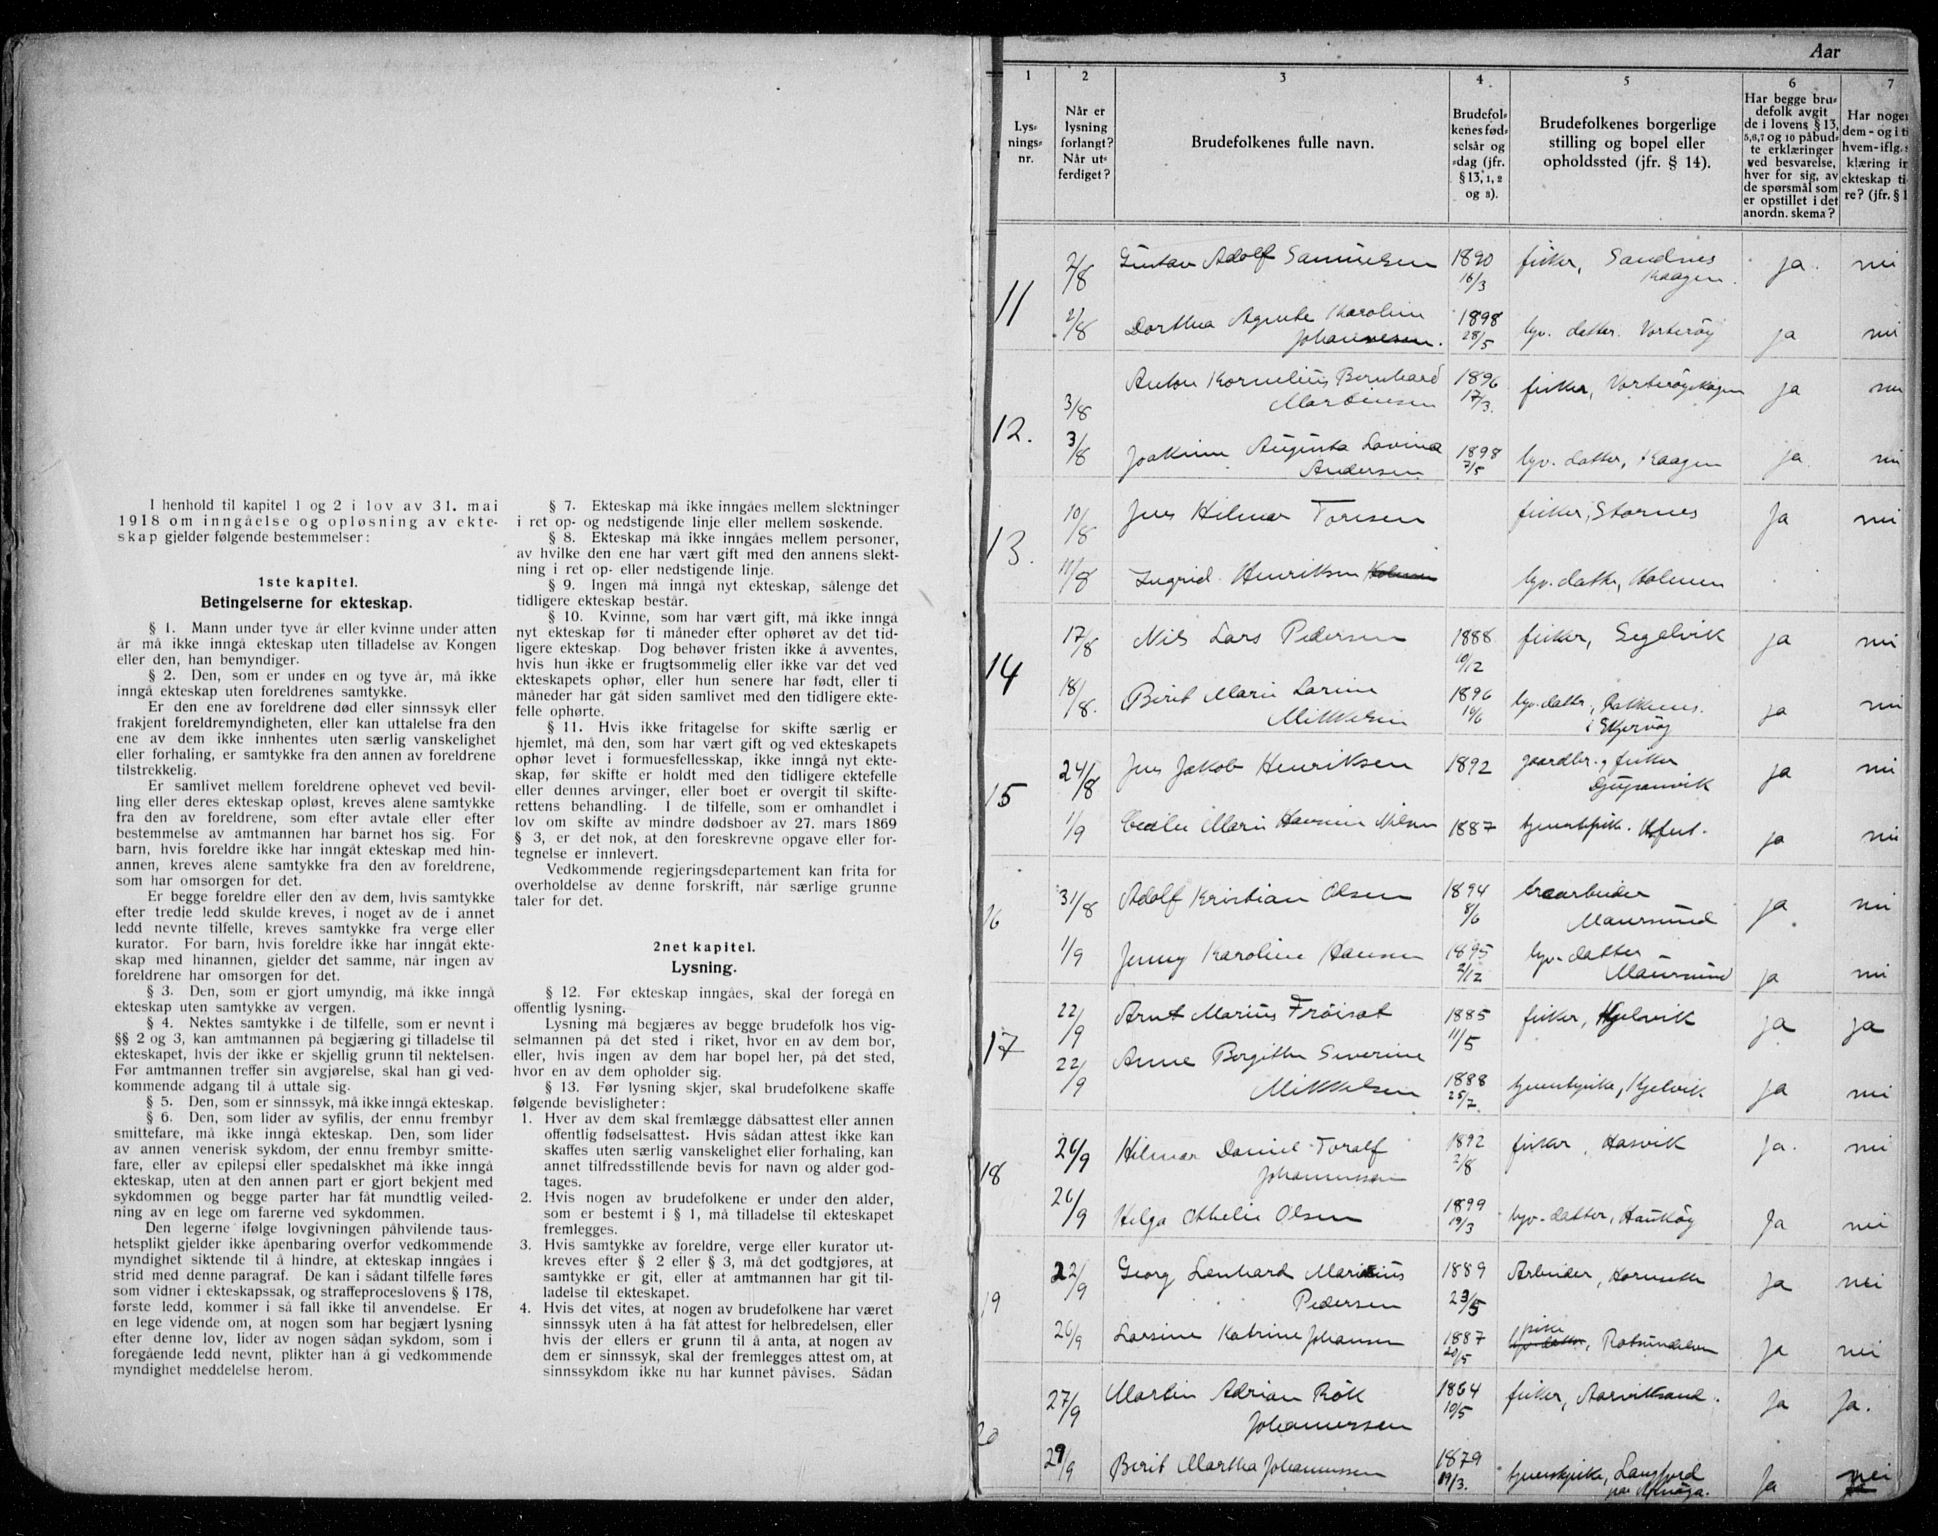 I henhold til kapitel 1 og 2 i lov av 31. mai
1918 om inngåelse og opløsning av ekte-
skap gjelder følgende bestemmelser:
1ste kapitel.
Betingelserne for ekteskap.
§ 1. Mann under tyve år eller kvinne under atten
år må ikke inngå ekteskap uten tilladelse av Kongen
eller den, han bemyndiger.
§ 2. Den, som er under en og tyve år, må ikke
inngå ekteskap uten foreldrenes samtykke.
Er den ene av foreldrene død eller sinnssyk eller
frakjent foreldremyndigheten, eller kan uttalelse fra den
ene av dem ikke innhentes uten særlig vanskelighet
eller forhaling, er samtykke fra den annen av foreldrene
tilstrekkelig.
Er samlivet mellem foreldrene ophevet ved bevil-
ling eller deres ekteskap opløst, kreves alene samtykke
fra den av foreldrene, som efter avtale eller efter
bestemmelse av amtmannen har barnet hos sig. For
barn, hvis foreldre ikke har inngåt ekteskap med hin-
annen, kreves alene samtykke fra den av foreldrene,
som har omsorgen for det.
Er begge foreldre eller den av dem, hvis samtykke
efter tredje ledd skulde kreves, i noget av de i annet
ledd nevnte tilfelle, kreves samtykke fra verge eller
kurator. For barn, hvis foreldre ikke har inngåt ekte-
skap med hinannen, gjelder det samme, når ingen av
foreldrene har omsorgen for det.
§ 3. Den, som er gjort umyndig, må ikke inngå
ekteskap uten samtykke av vergen.
§ 4. Nektes samtykke i de tilfelle, som er nevnt i
§§ 2 og 3, kan amtmannen på begjæring gi tilladelse til
ekteskapet, hvis der ikke er skjellig grunn til nektelsen.
Før amtmannen treffer sin avgjørelse, skal han gi ved-
kommende adgang til å uttale sig.
§ 5. Den, som er sinnssyk, må ikke inngå ekteskap.
§ 6. Den, som lider av syfilis, der ennu frembyr
smittefare, må ikke inngå ekteskap. Den, som lider
av annen venerisk sykdom, der ennu frembyr smitte-
fare, eller av epilepsi eller spedalskhet må ikke inngå
ekteskap, uten at den annen part er gjort bekjent med
sykdommen og begge parter har fåt mundtlig veiled-
ning av en lege om farerne ved sykdommen.
Den legerne ifølge lovgivningen påhvilende taus-
hetsplikt gjelder ikke åpenbaring overfor vedkommende
myndighet siktende til å hindre, at ekteskap inngåes i
strid med denne paragraf. De kan i sådant tilfelle føres
som vidner i ekteskapssak, og straffeproceslovens § 178,
første ledd, kommer i så fall ikke til anvendelse. Er
en lege vidende om, at nogen som har begjært lysning
efter denne lov, lider av nogen sådan sykdom, som i
foregående ledd nevnt, plikter han å gi vedkommende
myndighet meddelelse herom.
§ 7. Ekteskap må ikke inngåes mellem slektninger
i ret op- og nedstigende linje eller mellem søskende.
§ 8. Ekteskap må ikke inngåes mellem personer,
av hvilke den ene har vært gift med den annens slekt-
ning i ret op- eller nedstigende linje.
§ 9. Ingen må inngå nyt ekteskap, sålenge det
tidligere ekteskap består.
§ 10. Kvinne, som har vært gift, må ikke inngå
nyt ekteskap før ti måneder efter ophøret av det tid-
ligere ekteskap. Dog behøver fristen ikke å avventes,
hvis hun ikke er frugtsommelig eller ikke var det ved
ekteskapets ophør, eller hun senere har født, eller ti
måneder har gåt siden samlivet med den tidligere ekte-
felle ophørte.
§ 11. Hvis ikke fritagelse for skifte særlig er
hjemlet, må den, som har vært gift og ved ekteskapets
ophør levet i formuesfellesskap, ikke inngå nyt ekte-
skap, før skifte er holdt med den tidligere ektefelle
eller dennes arvinger, eller boet er overgit til skifte-
rettens behandling. I de tilfelle, som er omhandlet i
lov om skifte av mindre dødsboer av 27. mars 1869
§ 3, er det nok, at den foreskrevne opgave eller for-
tegnelse er innlevert.
Vedkommende regjeringsdepartement kan frita for
overholdelse av denne forskrift, når særlige grunne
taler for det.
2net kapitel.
Lysning.
§ 12. Før ekteskap inngåes, skal der foregå en
offentlig lysning.
Lysning må begjæres av begge brudefolk hos vig-
selmannen på det sted i riket, hvor en av dem bor,
eller, hvis ingen av dem har bopel her, på det sted,
hvor en av dem opholder sig.
§ 13. Før lysning skjer, skal brudefolkene skaffe
følgende bevisligheter:
1. Hver av dem skal fremlægge dåbsattest eller annen
offentlig fødselsattest. Hvis sådan attest ikke kan
skaffes uten særlig vanskelighet eller forhaling, kan
annet tilfredsstillende bevis for navn og alder god-
tages.
2. Hvis nogen av brudefolkene er under den alder,
som er bestemt i § 1, må tilladelse til ekteskapet
fremlegges.
3. Hvis samtykke av foreldre, verge eller kurator ut-
kreves efter § 2 eller § 3, må det godtgjøres, at
samtykke er git, eller at amtmannen har git til-
ladelse til ekteskapet.
4. Hvis det vites, at nogen av brudefolkene har været
sinnssyk uten å ha fåt attest for helbredelsen, eller
hvis der ellers er grunn til å anta, at nogen av
dem er sinnssyk, skal der fremlegges attest om, at
sinnssykdom ikke nu har kunnet påvises. Sådan
Aar
1 2 3 4 5 6 7
Lys-
nings-
nr.
Når er
lysning
forlangt?
Når ut-
ferdiget?
Brudefolkenes fulle navn.
Brudefol-
kenes fød-
selsår og
-dag (jfr.
§ 13, 1, 2
og 3).
Brudefolkenes borgerlige
stilling og bopel eller
opholdssted (jfr. § 14).
Har begge bru-
defolk avgit
de i lovens § 13,
5,6,7 og 10 påbud-
te erklæringer
ved besvarelse,
hver for sig, av
de spørsmål som
er opstillet i det
anordn. skema?
Har noge
dem - og i t
hvem-iflg.
klæring i
ekteskap ti
re? (jfr. §
11
2/8 Gustav Adolf Samuelsen 1890 16/3 fisker, Sandnes Kaagen. ja. nei
2/8 Dorthea Agnete Karoline Johannesen. 1898 28/5 hjv. datter. Vorterøy ja nei
12.
3/8 Anton Kornelius Bernhard Martinsen 1896 17/3. fisker, Vorterøyskagen ja nei
3/8 Joakime Augusta Lovina Andersen 1898 7/5 hjv. datter, Kaagen ja. nei
13.
10/8 Jens Hilmar Toresen fisker, Stornes Ja nei
11/8 Ingrid Henriksen Holmen hjv. datter, Holmen
14
17/8 Nils Lars Pedersen 1888 10/12 fisker, Segelvik ja nei
18/8. Berit Marie Larine Mikkelsen 1896 19/6 hjv. datter, i Skjervøy ja nei
15
24/8 Jens Jakob Henriksen 1892 gaardbr. og fisker Djupanvik ja nei
1/9 Marie Nilsen 1887 tjenestpike. ja nei
16
31/8 Adolf Kristian Olsen 1894 8/6 Maursund ja nei
1/9 Jenny Karoline Hansen 1895 2/12 hjv. datter Maursund ja nei
17
22/9 Arnt Marius Frøisat 1885 11/5 fisker, Kjelvik ja ja
22/9 Anne Bergitte Severine Mikkelsen 1888 25/7. tjenestpike, Kjelvik ja nei
18
26/9 Hilmar Daniel Toralf Johannessen 1892 2/8 fisker, Hasvik Ja. nei
26/9 Helga Othelie Olsen 1899 19/3 hjv. datter, Haukøy Ja nei
19
22/9 Georg Lenhard Marius Pedersen 1889 23/5 Arbeider, ja nei
26/9 Larsine Katrine Johansen 1887 20/5 pike hjv. datter, Rotsundelven Ja nei
20
27/9 Martin Adrian Røk Johannessen 1864 10/5 fisker, Aarviksand. Ja Ja.
29/9 Berit Martha Johannessen 1879 19/3. tjenestpike, Langfjord paa Arnøya. Ja nei